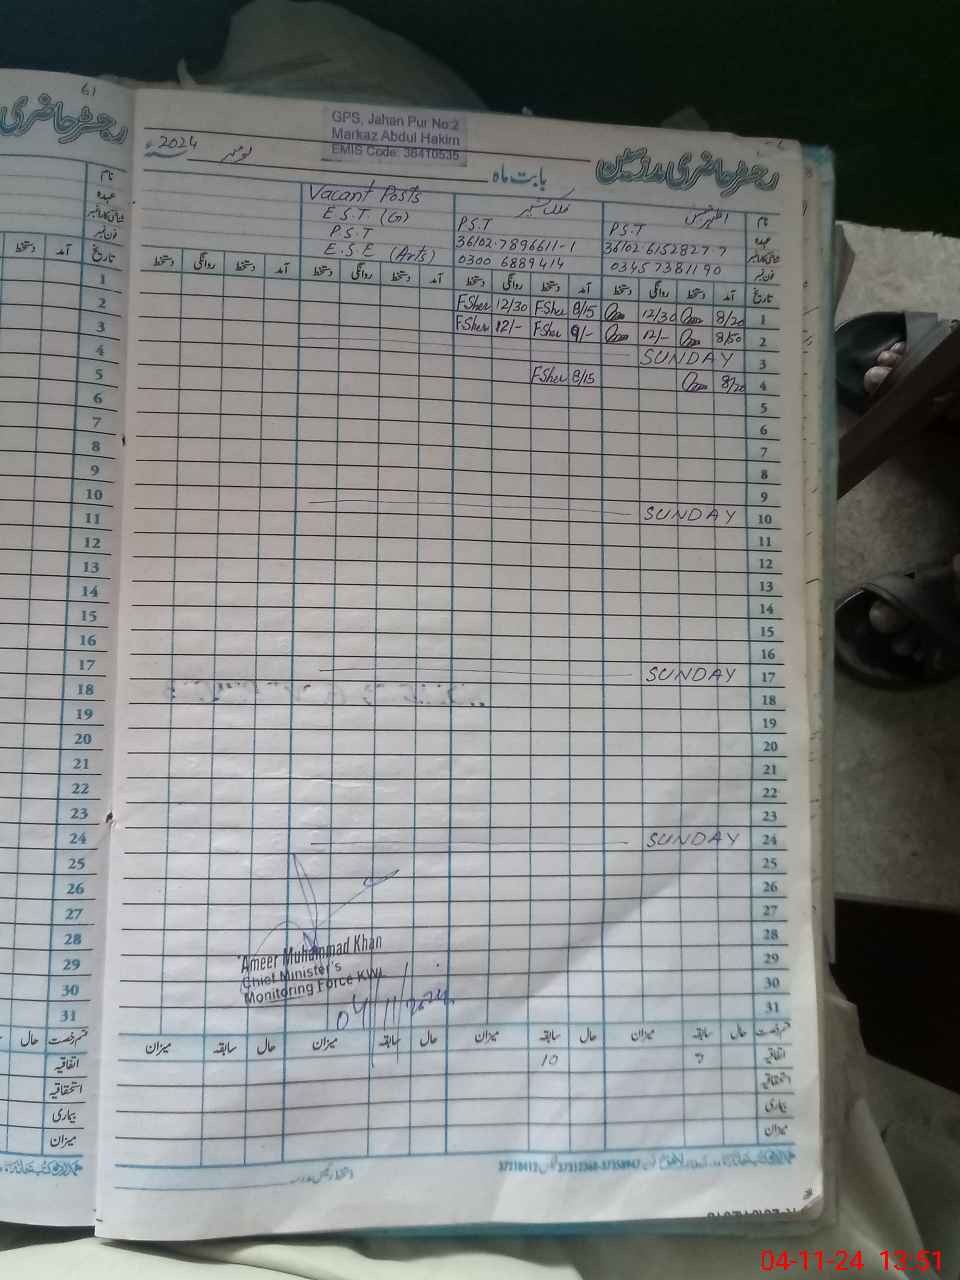 61
رجسٹر حاضری
GPS, Jahan Pur No:2
Markaz Abdul Hakim
EMIS Code: 38410535
رجسٹر حاضری مدرسین
بابت ماہ نومبر 2024ء
نام
عہدہ
شناختی کارڈ نمبر
فون نمبر
Vacant Posts
E.S.T (G)
P.S.T
E.S.E (Arts)
فلک شیر
P.S.T
36102-7896611-1
0300 6889414
P.S.T
36102 6152827 7
0345 7381190
نام
عہدہ
شناختی کارڈ نمبر
فون نمبر
دستخط آمد تاریخ
دستخط روانگی دستخط آمد دستخط روانگی دستخط آمد دستخط روانگی دستخط آمد دستخط روانگی دستخط آمد تاریخ
1 FSher 12/30 FSher 8/15 12/30 8/20 1
2 FSher 12/- FSher 9/- 12/- 8/50 2
3 SUNDAY 3
4 FSher 8/15 8/20 4
5 5
6 6
7 7
8 8
9 9
10 SUNDAY 10
11 11
12 12
13 13
14 14
15 15
16 16
17 SUNDAY 17
18 18
19 19
20 20
21 21
22 22
23 23
24 SUNDAY 24
25 25
26 26
27 27
28 28
29 29
30 30
31 31
Ameer Muhammad Khan
Chief Minister's
Monitoring Force KWL
04/11/2024
حال قسم رخصت
میزان سابقہ حال میزان سابقہ حال میزان سابقہ حال میزان سابقہ حال قسم رخصت
اتفاقیہ 10 اتفاقیہ
استحقاقیہ استحقاقیہ
بیماری بیماری
میزان میزان
04-11-24 13:51